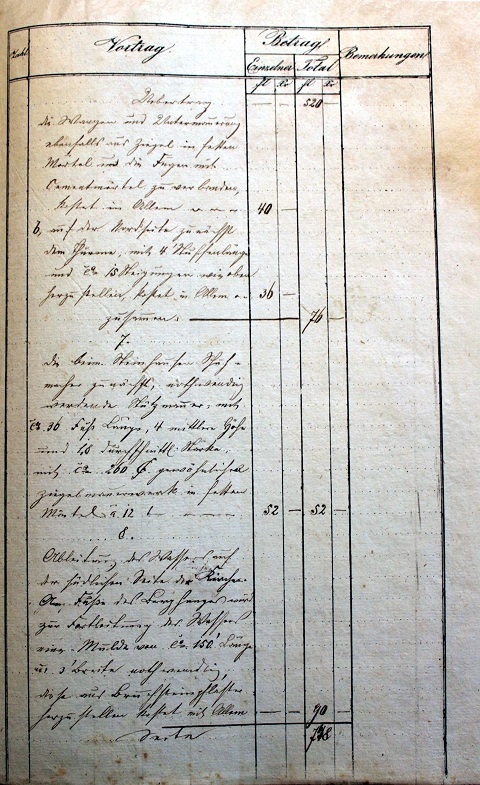 Zahl Vortrag. Betrag Bemerkungen
Einzelner Total
fl xr fl xr
Uebertrag — — 520
die Wangen und Untermauerung
ebenfalls aus Ziegel in fetten
Mörtel und die Fugen mit
Cementmörtel zu verbinden,
kostet im Allem 40 —
b, auf der Nordseite zunächst
dem Thurme, mit 4 Länge
und ca 15 Steigungen wie oben
herzustellen, kostet in Allem 36 —
zusamen: 76 —
7.
die beim Steinhauser Schuh-
macher zunächst, nothwendig
werdende Stützmauer, mit
ca 36 Fuß Länge, 4 mittlere Höhe
und 1,8 durchschnittl. Stärke,
mit ca 260 gewöhnliches
Ziegelmauerwerk in fetten
Mörtel à 12 52 — 52 —
8.
Ableitung des Wassers auf
der südlichen Seite der Kirche.
Am Fuße des Berghanges wird
zur Fortleitung des Wassers
eine Mulde von ca 150' Länge
u: 3' Breite nothwendig,
diese aus Bruchsteinpflaster
herzustellen kostet mit Allem — — 90 —
Seite 738